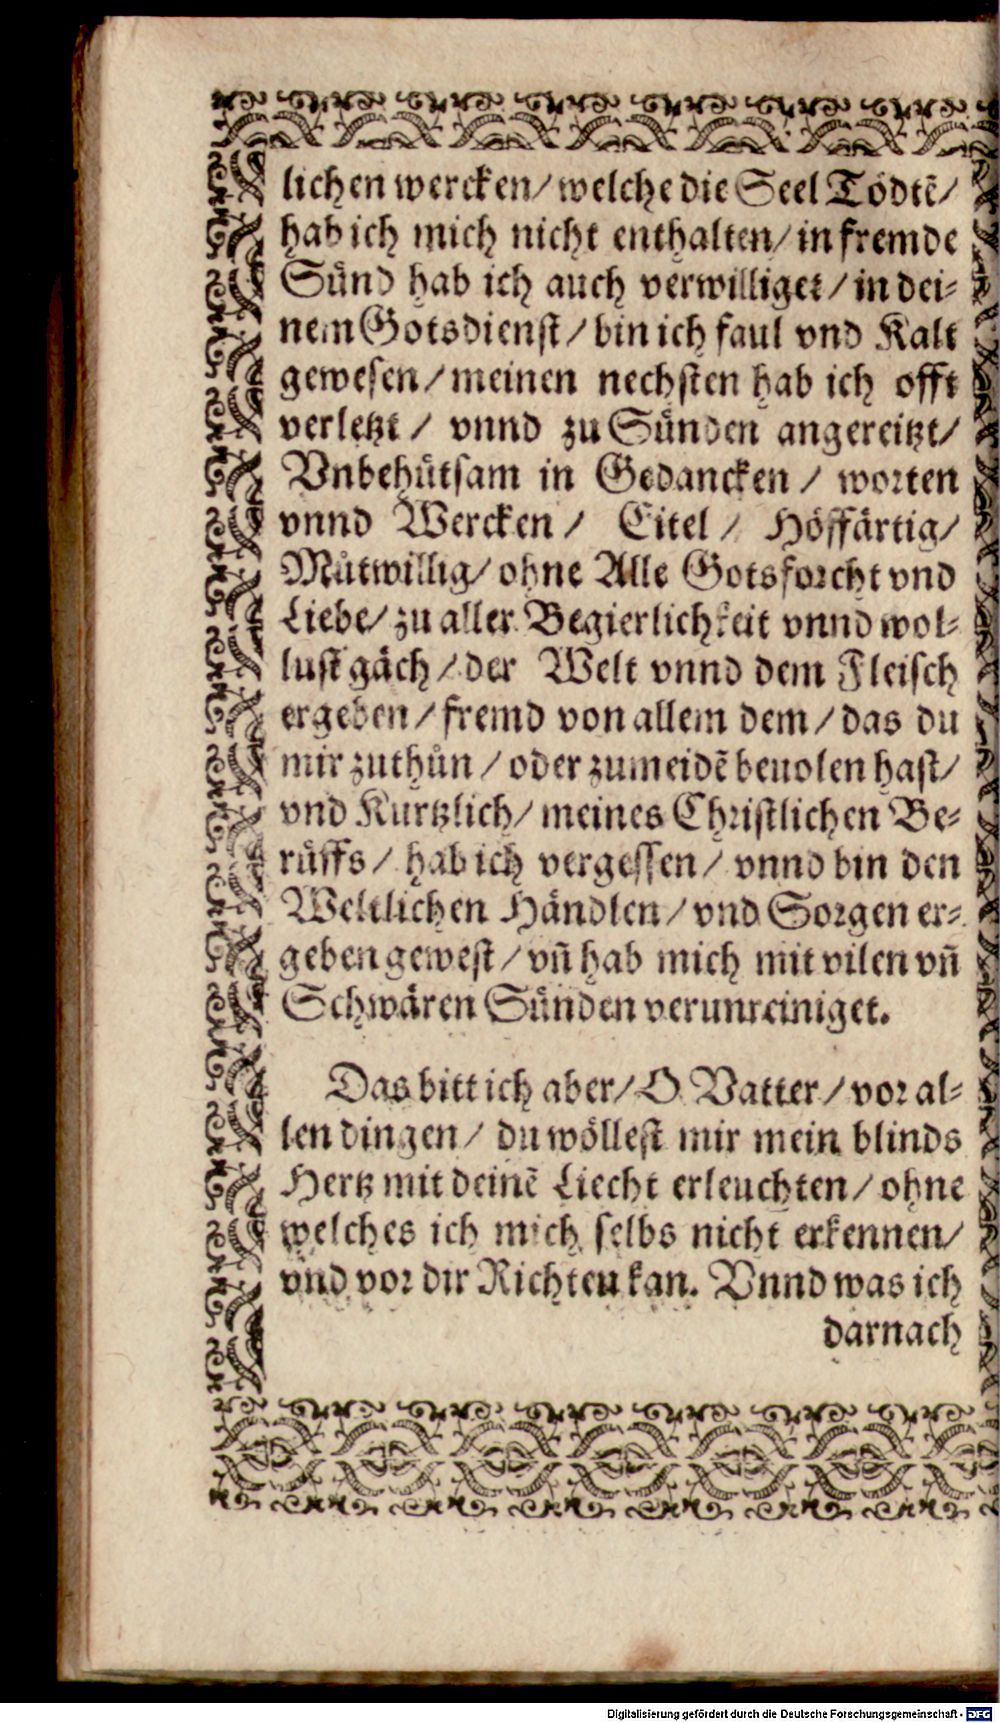 lichen wercken/ welche die Seel Tödtẽ/
hab ich mich nicht enthalten/ in fremde
Sünd hab ich auch verwilliget/ in dei-
nem Gotsdienst/ bin ich faul vnd Kalt
gewesen/ meinen nechsten hab ich offt
verletzt/ vnnd zu Sünden angereitzt/
Vnbehůtsam in Gedancken/ worten
vnnd Wercken/ Eitel/ Höffärtig/
Můtwillig/ ohne Alle Gotsforcht vnd
Liebe/ zu aller Begierlichkeit vnnd wol-
lust gäch/ der Welt vnnd dem Fleisch
ergeben/ fremd von allem dem/ das du
mir zuthůn/ oder zumeidẽ beuolen hast/
vnd Kurtzlich/ meines Christlichen Be-
růffs/ hab ich vergessen/ vnnd bin den
Weltlichen Händlen/ vnd Sorgen er-
geben gewest/ vñ hab mich mit vilen vñ
Schwären Sünden verunreiniget.
Das bitt ich aber/ O Vatter/ vor al-
len dingen/ du wöllest mir mein blinds
Hertz mit deinẽ Liecht erleuchten/ ohne
welches ich mich selbs nicht erkennen/
vnd vor dir Richten kan. Vnnd was ich
darnach
Digitalisierung gefördert durch die Deutsche Forschungsgemeinschaft - DFG